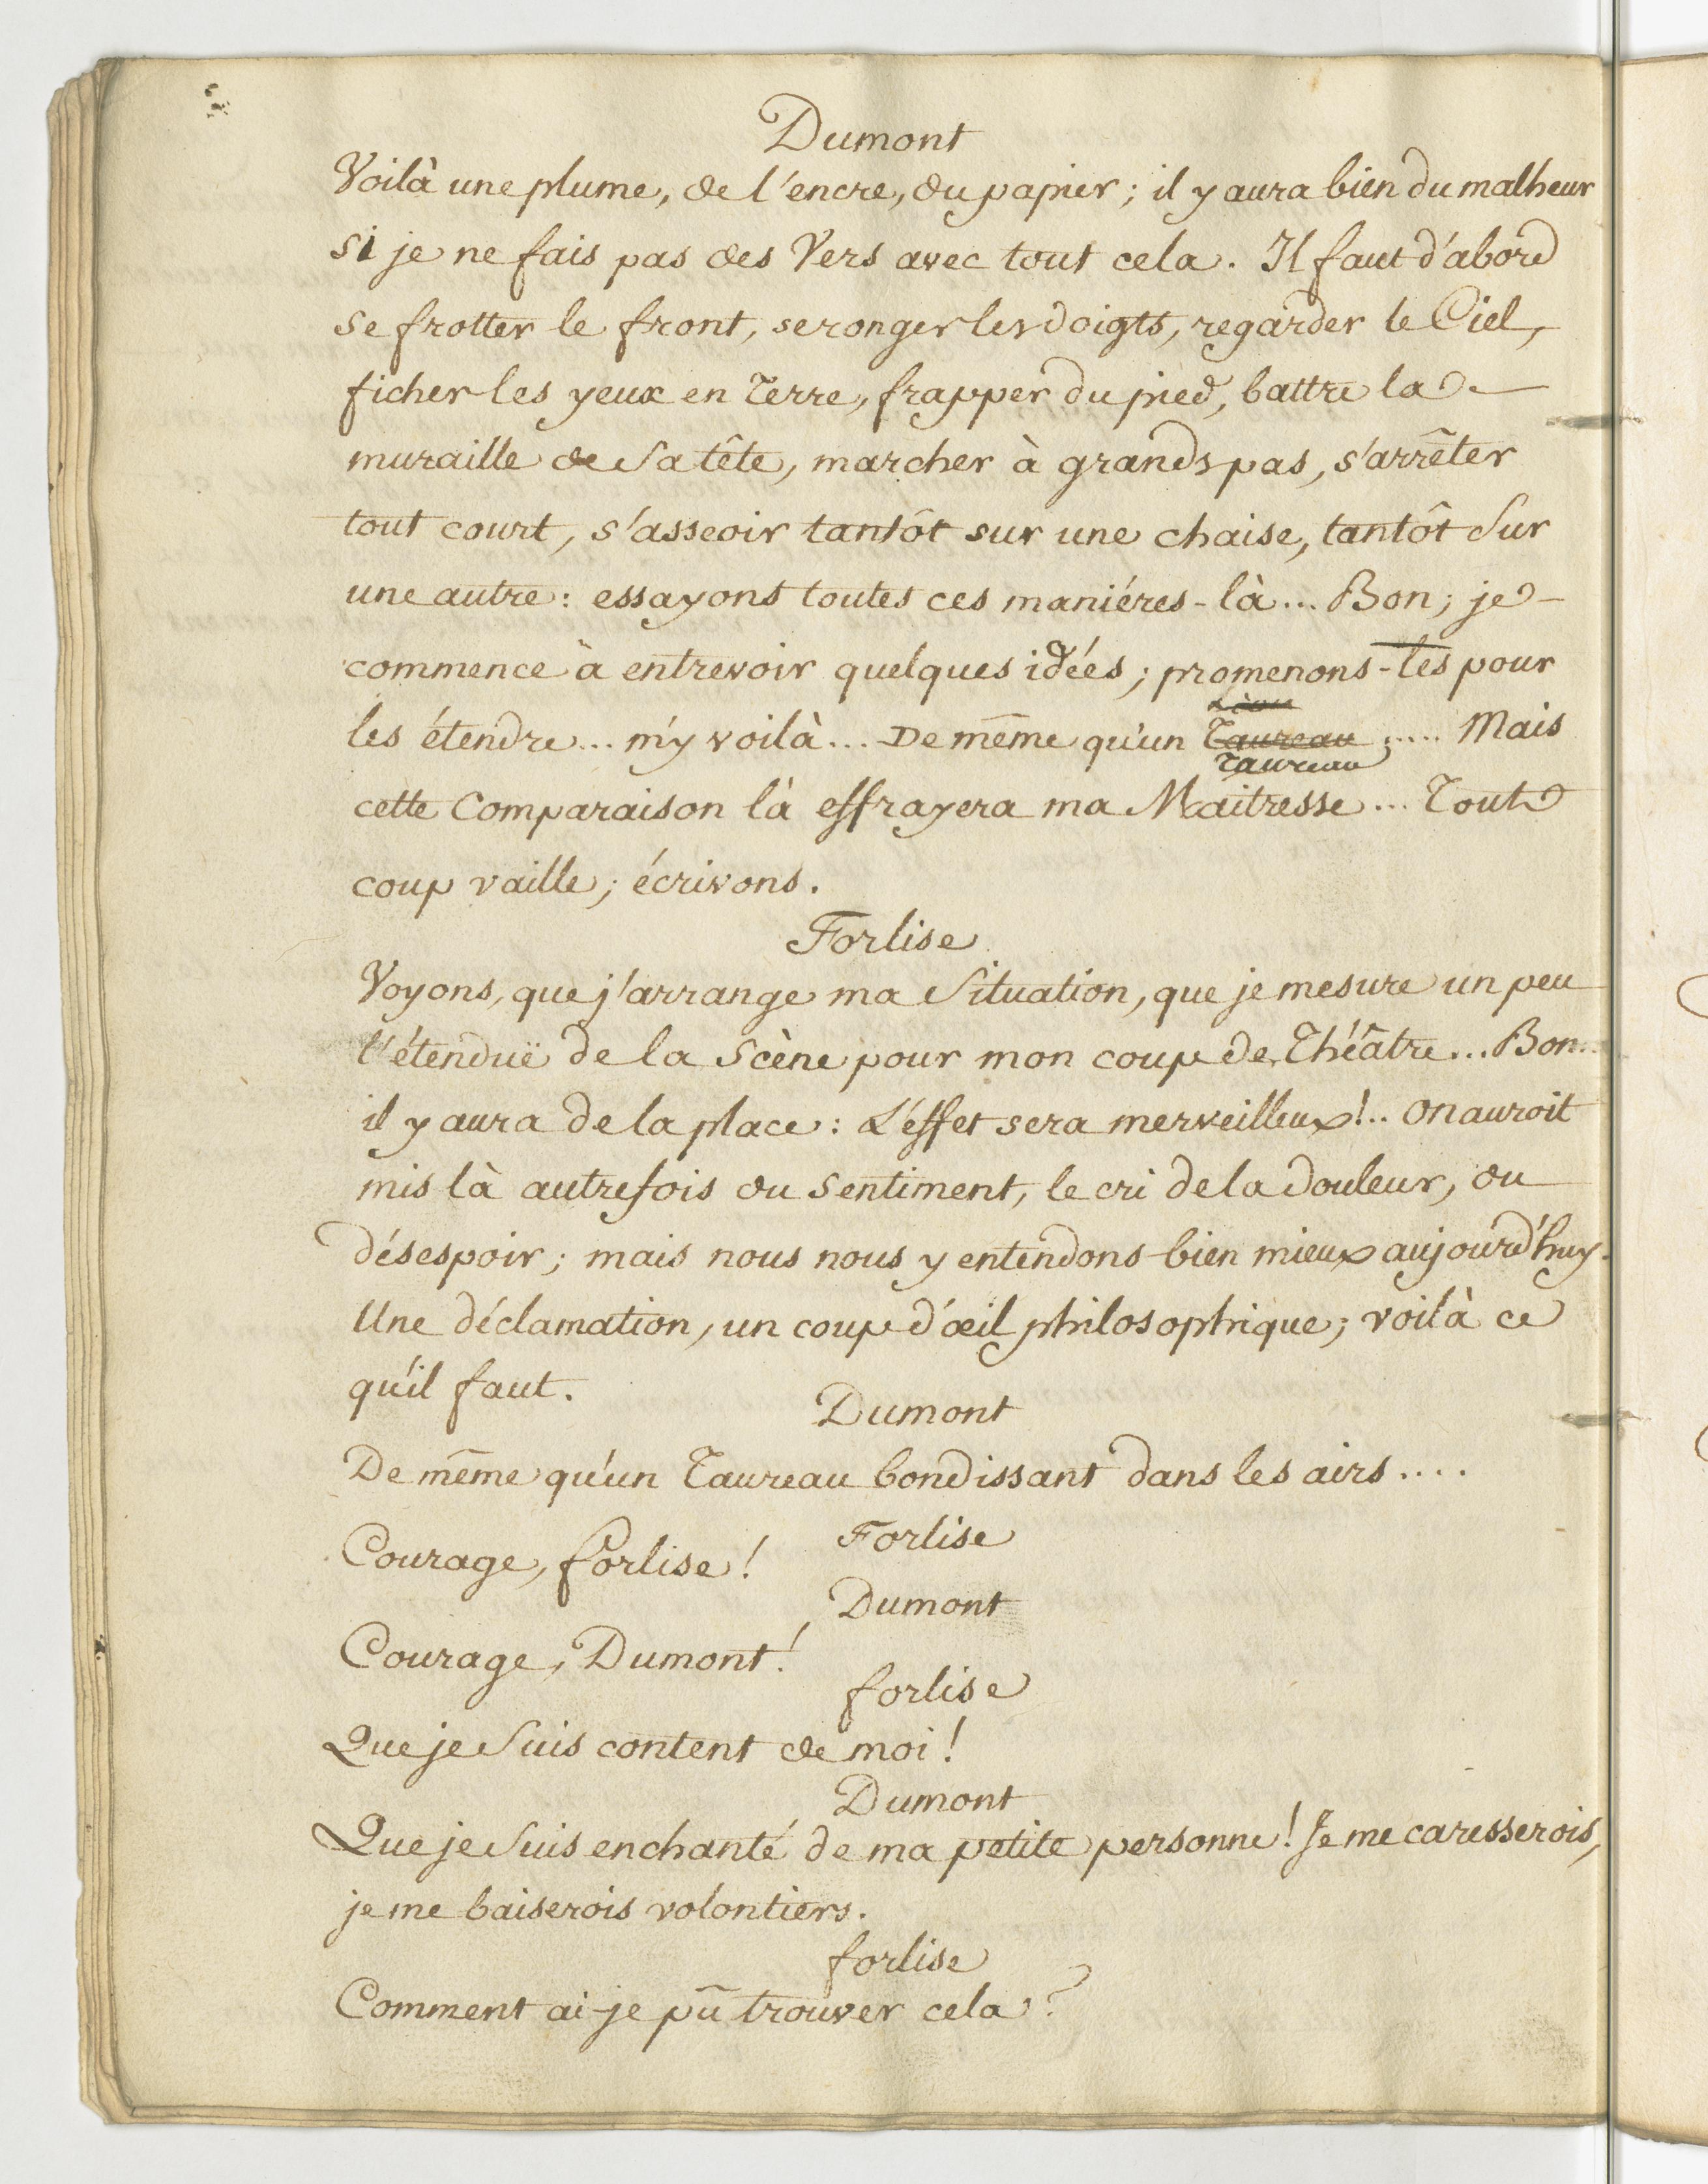 Dumont
Voilà une plume, de l'encre, du papier; il y aura bien du malheur
si je ne fais pas des Vers avec tout cela. Il faut d'abord
se frotter le front, se ronger les doigts, regarder le Ciel,
ficher les yeux en Terre, frapper du pied, battre la
muraille de sa tête, marcher à grands pas, s'arrêter
tout court, s'asseoir tantôt sur une chaise, tantôt sur
une autre: essayons toutes ces maniéres-là... Bon; je
commence à entrevoir quelques idées; promenons-les pour
les étendre... m'y voilà... De même qu'un Taureau ..... Mais
Taureau
cette Comparaison là effrayera ma Maitresse... Tout
coup vaille; écrivons.
Forlise
Voyons, que j'arrange ma situation, que je mesure un peu
l'étenduë de la Scène pour mon coup de Théâtre... Bon...
il y aura de la place: L'effet sera merveilleux!.. on auroit
mis là autrefois du sentiment, le cri de la douleur, du
désespoir; mais nous nous y entendons bien mieux aujourd'huy.
Une déclamation, un coup d'œil philosophique; voilà ce
qu'il faut.
Dumont
De même qu'un Taureau bondissant dans les airs....
Forlise
Courage, forlise!
Dumont
Courage, Dumont!
forlise
Que je suis content de moi!
Dumont
Que je suis enchanté de ma petite personne! Je me caresserois,
je me baiserois volontiers.
forlise
Comment ai-je pû trouver cela?